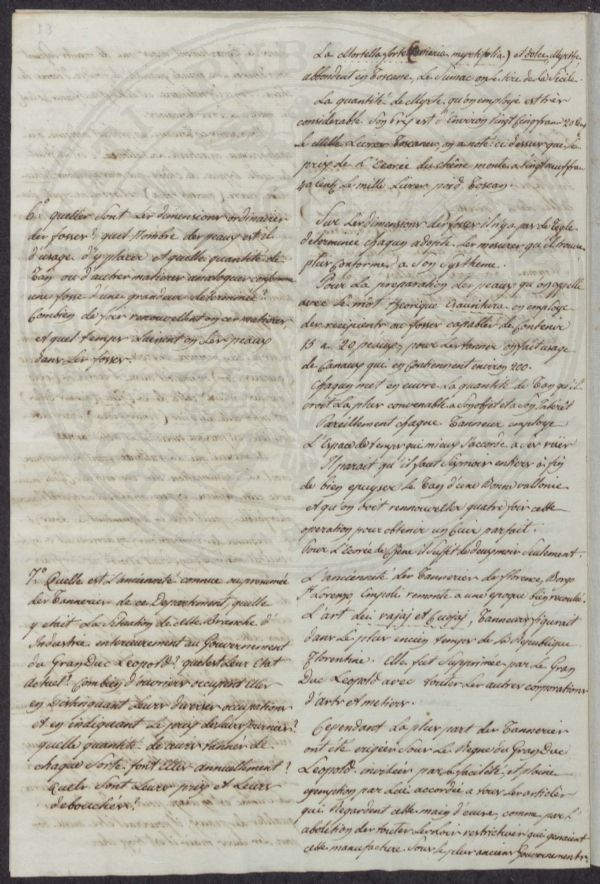 La Mortella forte (Coriaria myrtifolia) et dolce, Myrthe,
abbondent en toscane, Le Sumac on le tire de la Sicile.
La quantité de Myrte qu'on employe est très
considerable. Son Prix est d'Environ vingt cinq francs 20 cent
le Mille Livres Toscanes, on a noté ci-dessus que le
prix de l'Ecorce du chêne monte à vingt neuf fran
40 Cent. le mille Livres poid Toscan.
6.º quelles sont les dimensions ordinaires
des fosses? quel Nombre des peaux est il
d'usage d'y placer et quelle quantité de
Tan ou d'autres matieres analogues consomme
une fosse d'une grandeur determinée?
Combien de fois renouvellent on ces matieres
et quel temps laissent on les peaux
dans les fosses.
Sur les dimensions des fosses il n'y a pas de Regle
determinée chaqun adopte les mesures qu'il trouve
plus conformes a son Systheme.
Pour la preparation des peaux qu'on appelle
avec le mot on employe
des recipients ou fosses capables de contenir
15 a 20 peaux, pour les tanner on fait usage
de Canaux qui en contiennent environ 200.
Chaqun met en œuvre la quantité de Tan qu'il
croit la plus convenable a son objet et a son interêt
Pareillement chaque Tanneur employe
l'Espace de temps qui mieux s'accorde a ses vues
Il parait qu'il faut six mois entiers à fin
de bien epuyser le Tan d'une Bonne vallonie
et qu'on doit rennouveller quatre fois cette
operation pour obtenir un Cuir parfait.
Pour l'Ecorce de Chêne il suffit de deux mois seulement.
7.º Quelle est l'ancienneté connue ou presumée
des Tanneries de ce Departement, quelle
y était la Situation de cette Branche d'
Industrie enterieurement au Gouvernement
du Gran Duc Leopold? quel est leur Etat
actuel? Combien d'ouvriers occupent elles
en distinguant leurs diverses occupations
et en indiquant le prix de leurs journées?
quelle quantité de cuirs tannés de
chaque sorte font elles annuellement?
Quels sont leurs prix et leurs
debouchés?
L'ancienneté des Tanneries de florence, Borgo
S. Lorenzo Empoli remonte a une epoque bien reculée.
L'art dei vajaj et Cuojaj, Tanneurs figurait
dans le plus encien temps de la Republique
Florentine. elle fut supprimée par le Gran
Duc Leopold avec toutes les autres corporations
d'arts et metiers.
Cependant la plus part des Tanneries
ont été erigées sous le Regne du Gran Duc
Leopold, par la facilité, et pleine
exemption par Lui accordée a tous les articles
qui Regardent cette main d'œuvre, comme par l'
abolition des toutes les Loix restrictives qui genaient
cette manufacture sous le plus ancien Gouvernement.